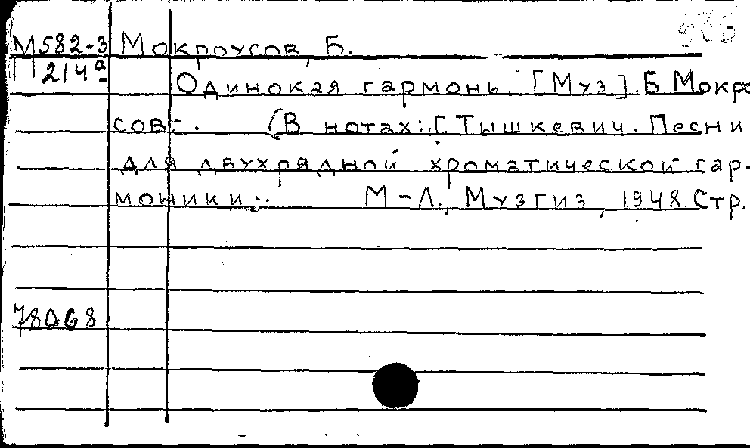 М582-3 Мокроусов, Б.
П214а
Одинокая гармонь. [Муз] Б Мокро
сов:. (В нотах: Г. Тышкевич. Песни
для двухрядной хроматической гар-
моники:. М-Л., Музгиз, 1948. Стр.
78068